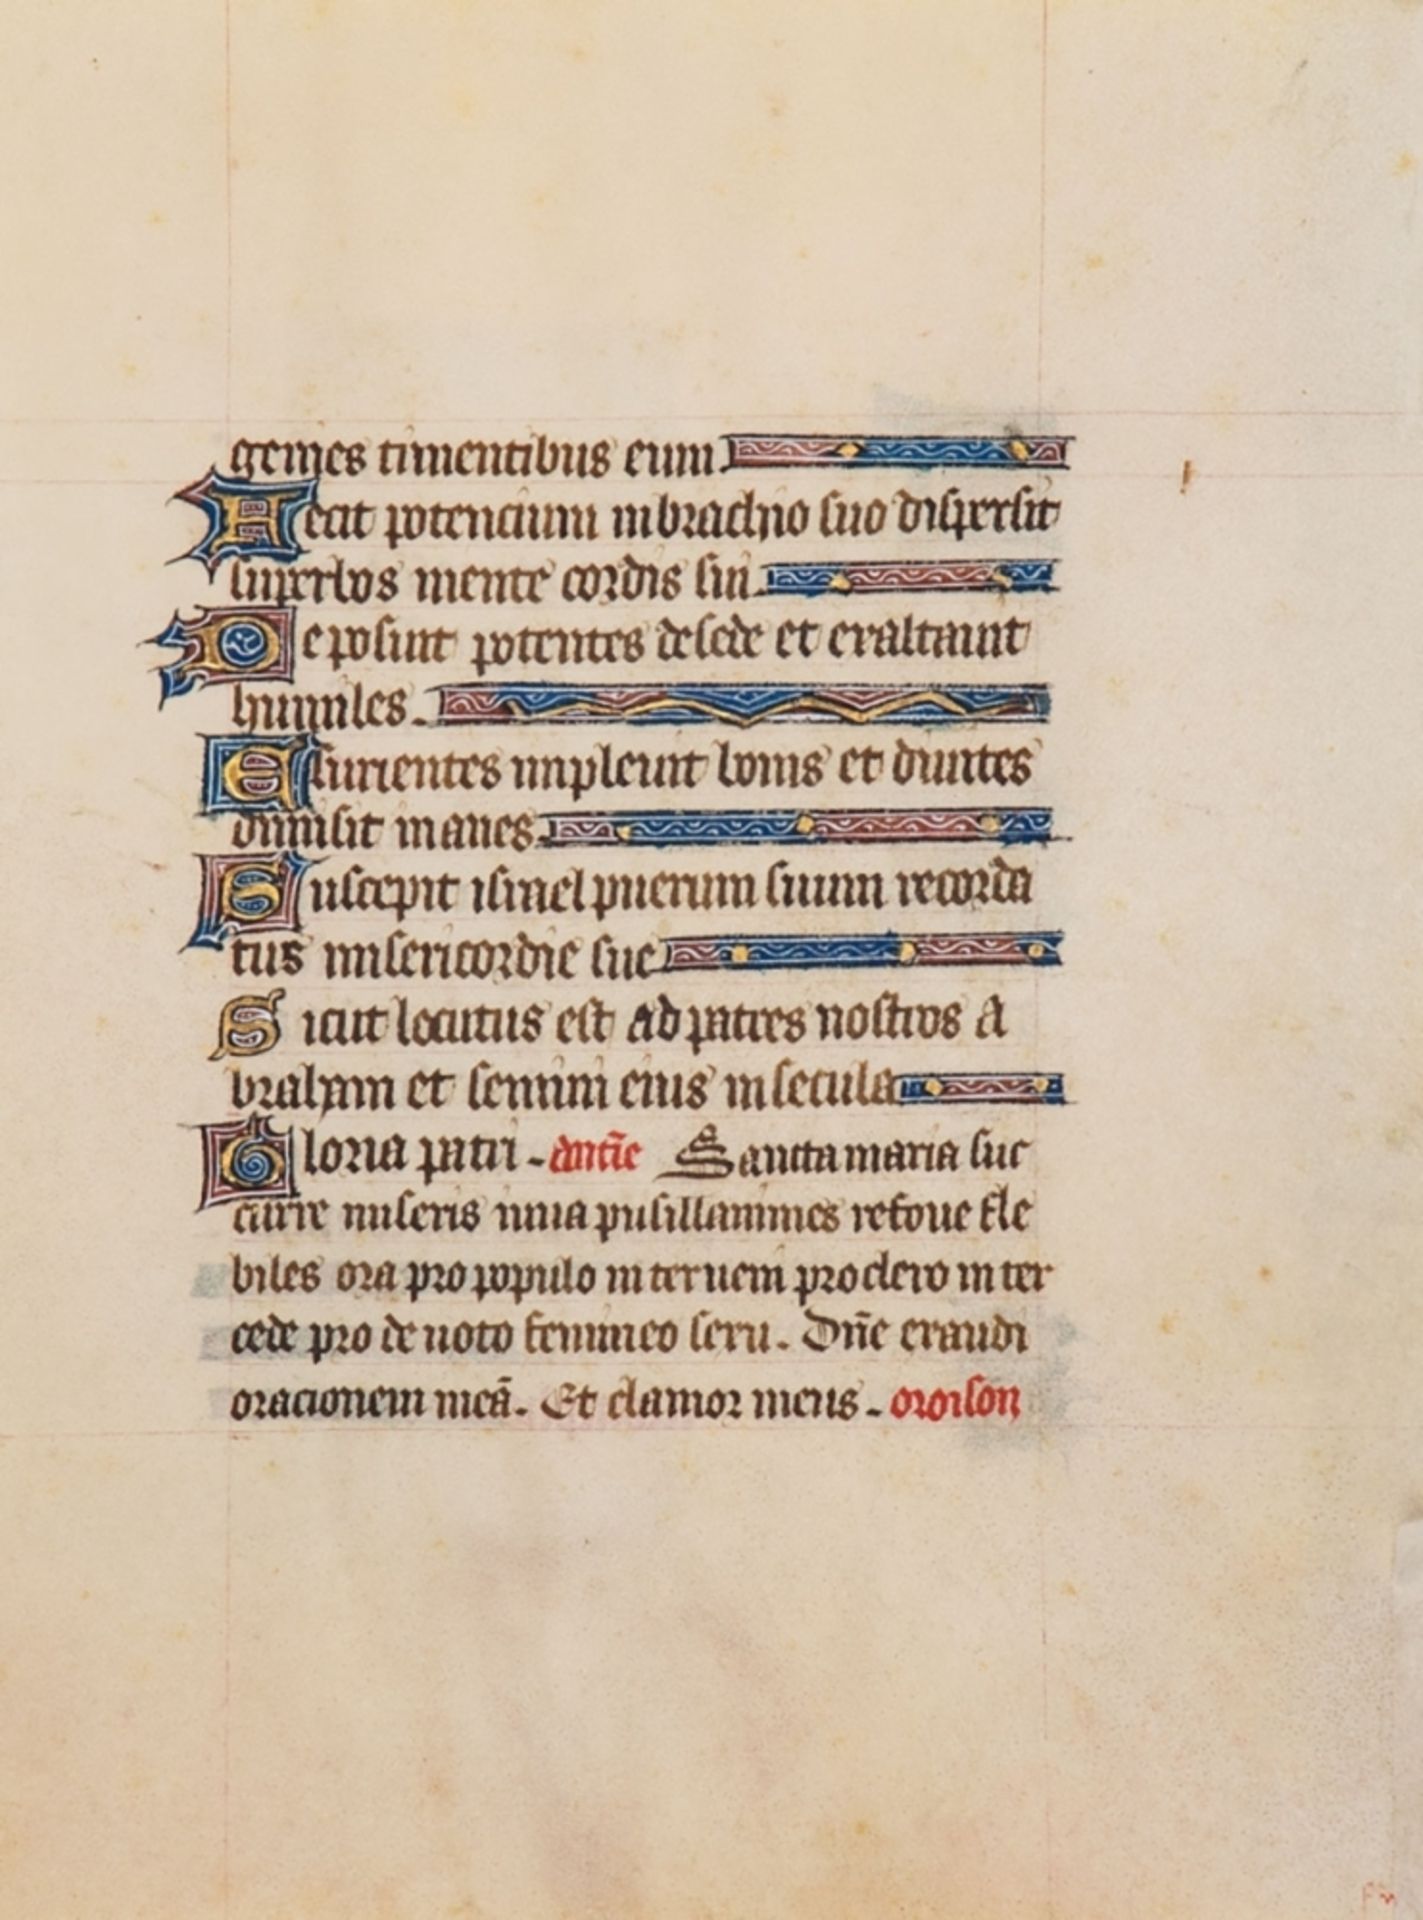 genies timentibus eum
Fecit potenciam inbrachio suo dispersit
superbos mente cordis sui.
Deposuit potentes desede et exaltauit
humiles.
Esurientes impleuit bonis et diuites
dimisit inanes.
Suscepit israel puerum suum recorda
tus misericordie sue
Sicut locutus est ad patres nostros a
braham et semini eius insecula
Gloria patri. antiē Sancta maria suc
curre miseris iuua pusillanimes refoue fle
biles ora pro populo interueni proclero inter
cede pro deuoto femineo sexu. Dñe exaudi
oracionem meā. Et clamor meus. oroison